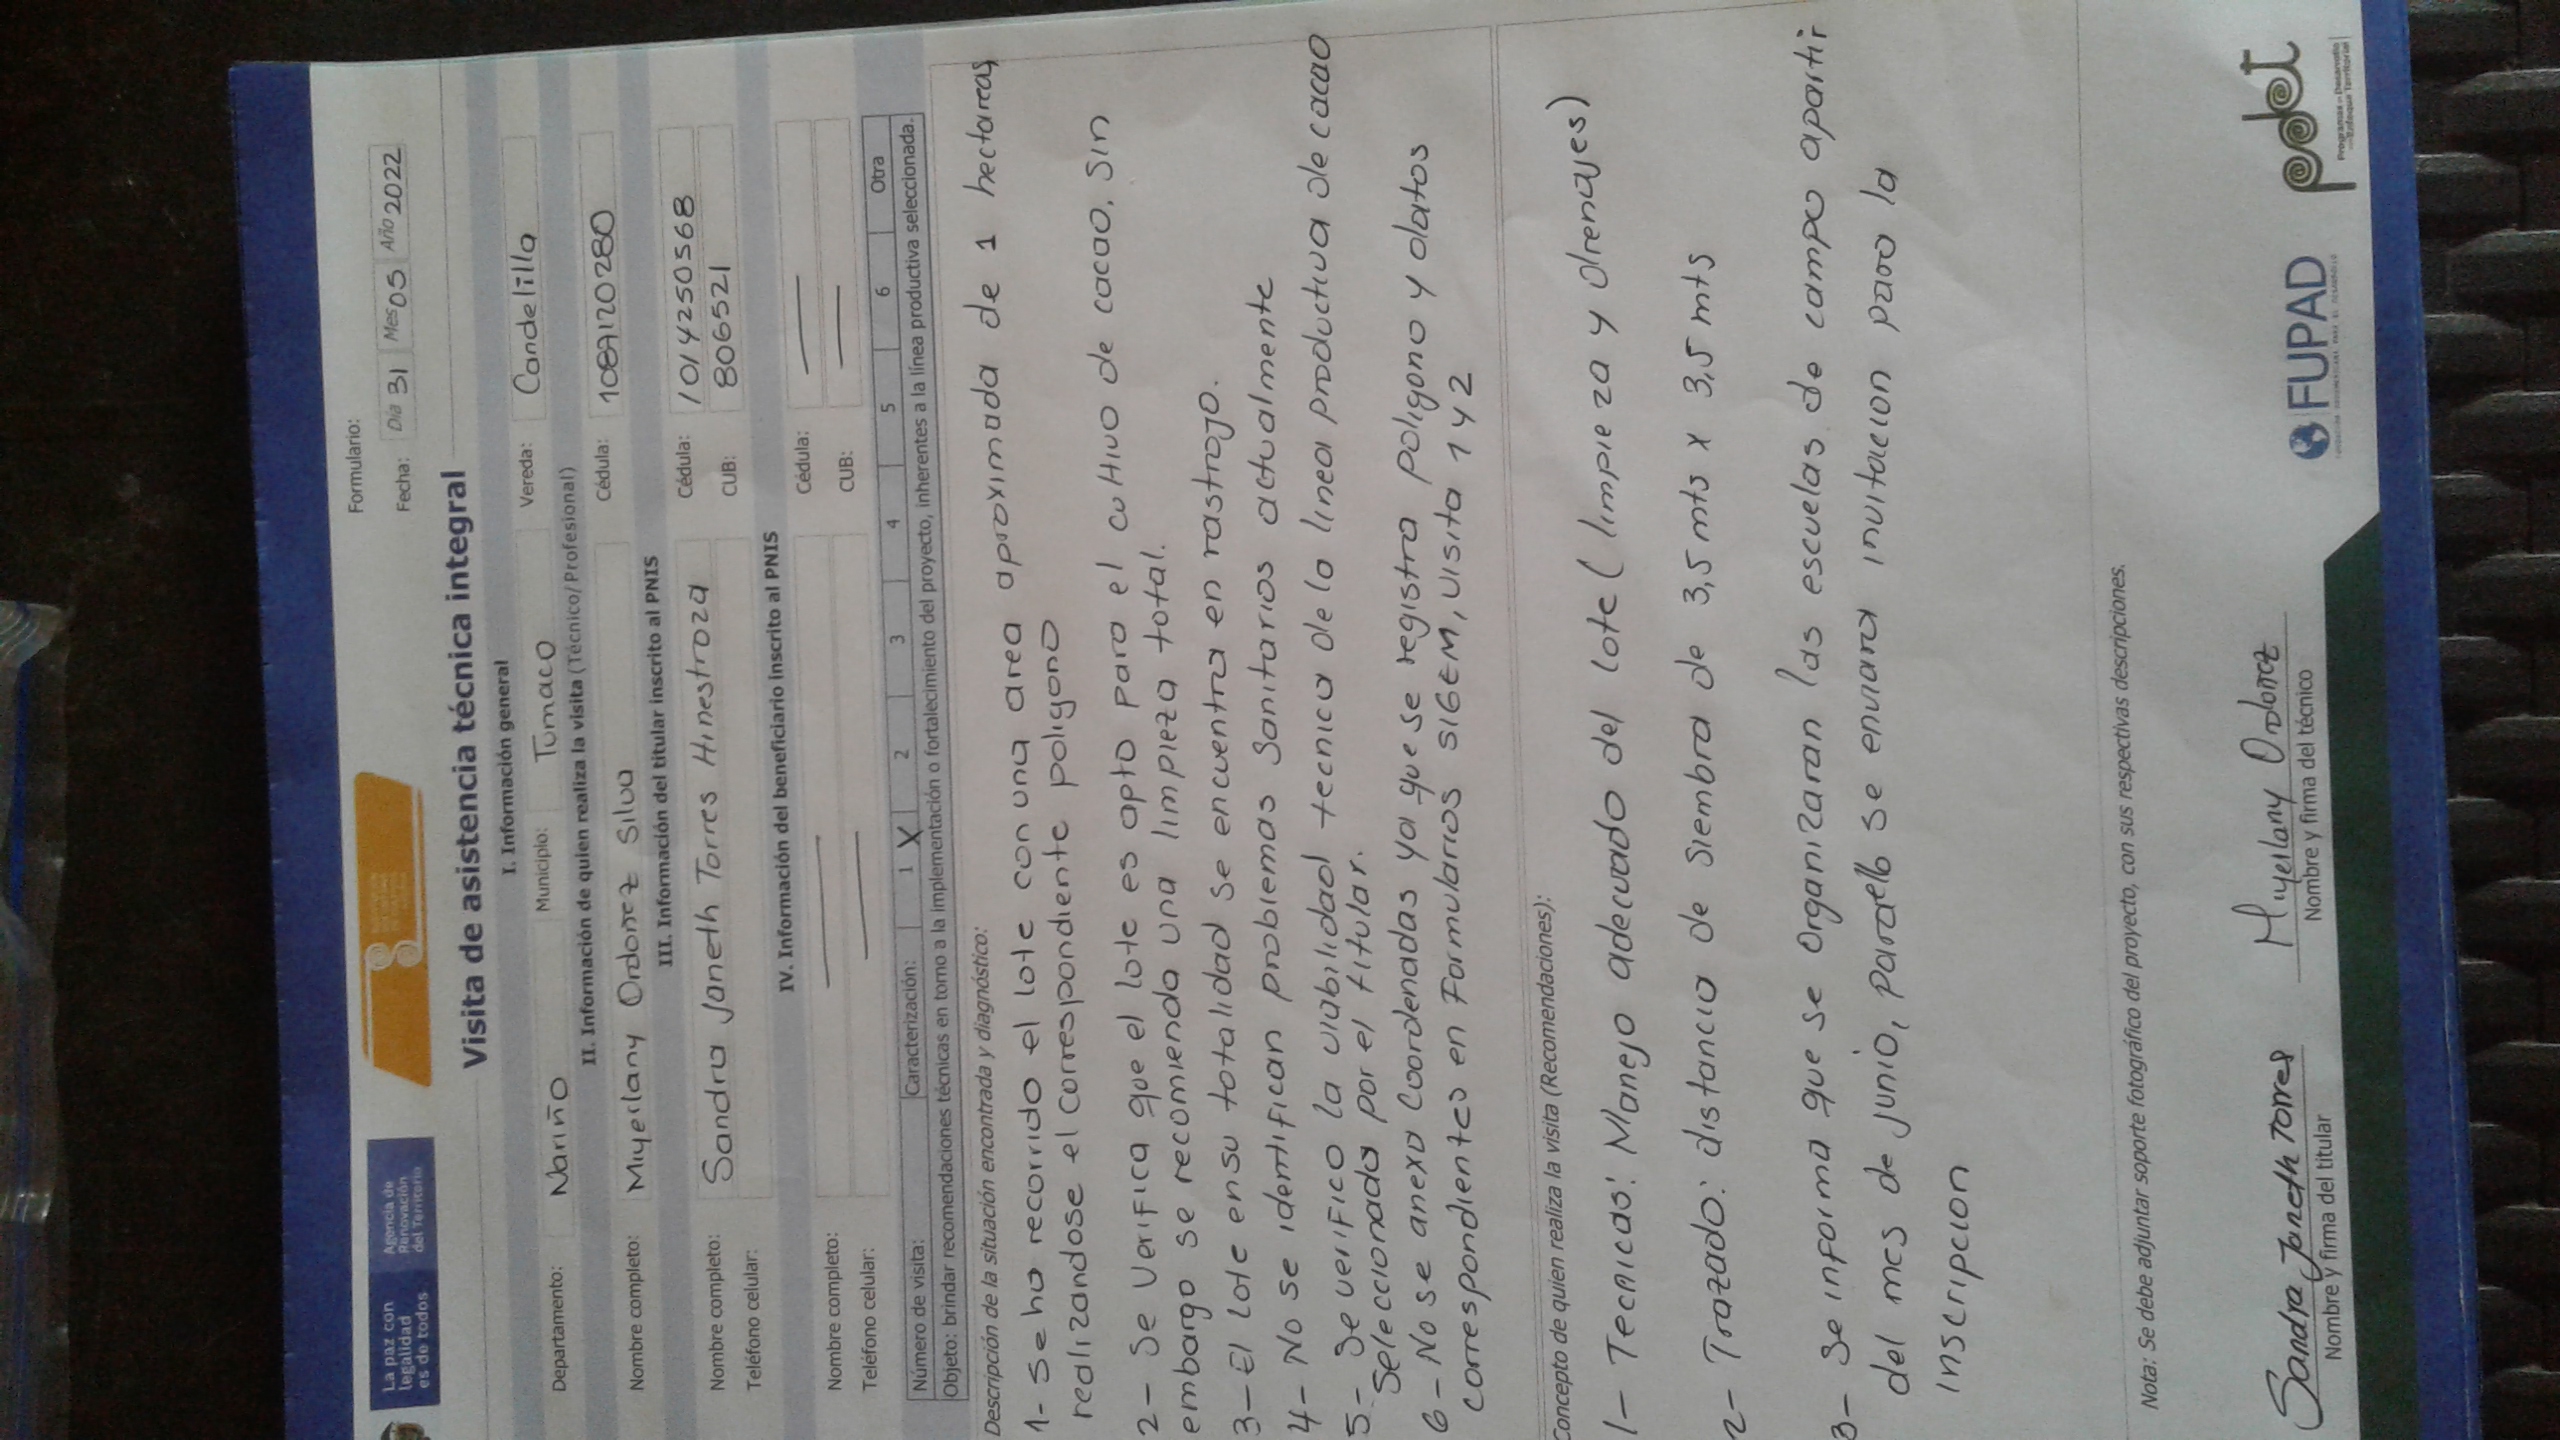 La paz con
legalidad
es de todos
Agencia de
Renovación
del Territorio
Formulario:
Fecha: Día 31 Mes 05 Año 2022
Visita de asistencia técnica integral
I. Información general
Departamento: Nariño Municipio: Tumaco Vereda: Candelilla
II. Información de quien realiza la visita (Técnico/Profesional)
Nombre completo: Miyerlany Ordoñez Silva Cédula: 1089120280
III. Información del titular inscrito al PNIS
Nombre completo: Sandra Janeth Torres Hinestroza Cédula: 1014250568
Teléfono celular: CUB: 806521
IV. Información del beneficiario inscrito al PNIS
Nombre completo: — Cédula: —
Teléfono celular: — CUB: —
Número de visita: Caracterización: 1 X 2 3 4 5 6 Otra
Objeto: brindar recomendaciones técnicas en torno a la implementación o fortalecimiento del proyecto, inherentes a la línea productiva seleccionada.
Descripción de la situación encontrada y diagnóstico:
1- Se ha recorrido el lote con una area aproximada de 1 hectareas
realizandose el correspondiente poligono
2- Se verifica que el lote es apto para el cultivo de cacao, sin
embargo se recomienda una limpieza total.
3- El lote en su totalidad se encuentra en rastrojo.
4- No se identifican problemas Sanitarios actualmente
5- Se verifico la viabilidad tecnica de la linea productiva de cacao
Seleccionada por el titular.
6- No se anexa Coordenadas ya que se registra poligono y datos
correspondientes en Formularios SIGEM, visita 1 y 2
Concepto de quien realiza la visita (Recomendaciones):
1- Tecnicas: Manejo adecuado del lote (limpieza y drenajes)
2- Trazado: distancia de siembra de 3,5 mts x 3,5 mts
3- Se informa que se Organizaran las escuelas de campo apartir
del mes de junio, para ello se enviara invitacion para la
inscripcion
Nota: Se debe adjuntar soporte fotográfico del proyecto, con sus respectivas descripciones.
Sandra Janeth Torres
Nombre y firma del titular
Miyerlany Ordoñez
Nombre y firma del técnico
FUPAD
pdet
Programas de Desarrollo
con Enfoque Territorial